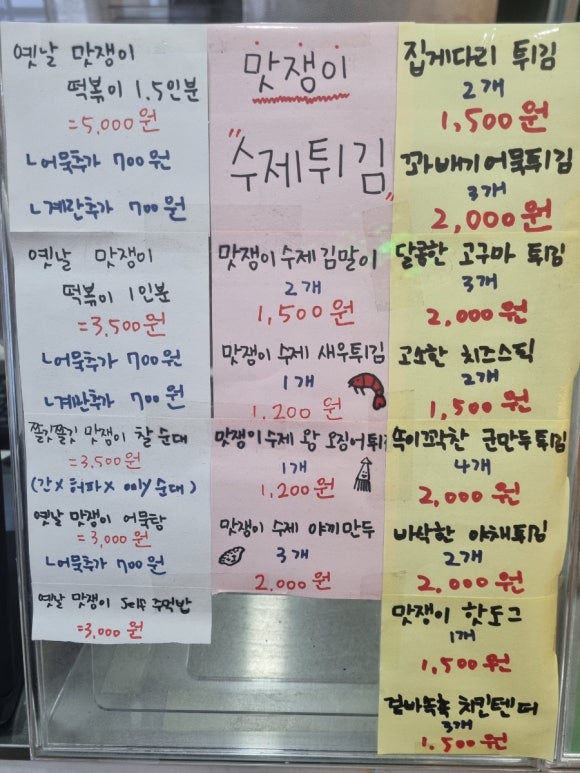 옛날 맛쟁이
떡볶이 1.5인분
=5,000원
ㄴ어묵추가 700원
ㄴ계란추가 700원
옛날 맛쟁이
떡볶이 1인분
=3,500원
ㄴ어묵추가 700원
ㄴ계란추가 700원
쫄깃쫄깃 맛쟁이 찰순대
=3,500원
(간X 허파X only 순대)
옛날 맛쟁이 어묵탕
=3,000원
ㄴ어묵추가 700원
옛날 맛쟁이 self 주먹밥
=3,000원
맛쟁이
"수제튀김"
맛쟁이 수제 김말이
2개
1,500원
맛쟁이 수제 새우튀김
1개
1,200원
맛쟁이 수제 왕 오징어튀
1개
1,200원
맛쟁이 수제 야끼만두
3개
2,000원
집게다리 튀김
2개
1,500원
꽈배기어묵튀김
3개
2,000원
달콤한 고구마 튀김
3개
2,000원
고소한 치즈스틱
2개
1,500원
속이꽉찬 군만두튀김
4개
2,000원
바삭한 야채튀김
2개
2,000원
맛쟁이 핫도그
1개
1,500원
겉바속촉 치킨텐더
3개
1,500원